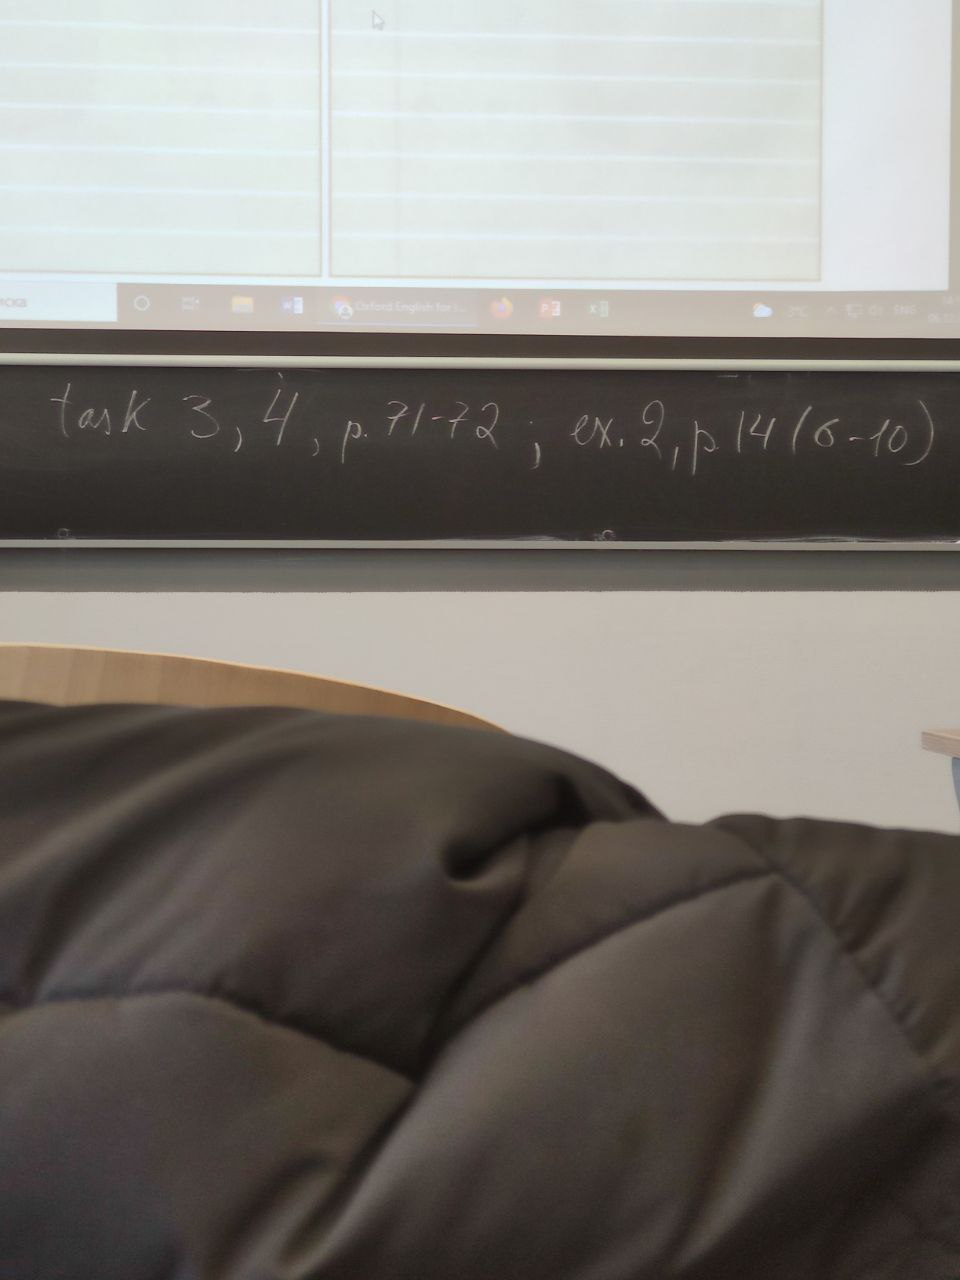 мска
Oxford English for i...
3°C
ENG
task 3, 4, p. 71-72 ; ex. 2, p 14 (6-10)